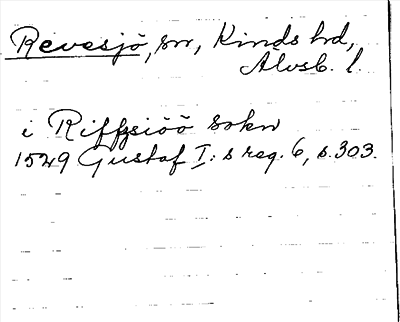 Revesjö, sn, Kinds hd,
Älvsb. l.
i Riffzsiöö sokn
1529 Gustaf I:s reg. 6, s. 303.